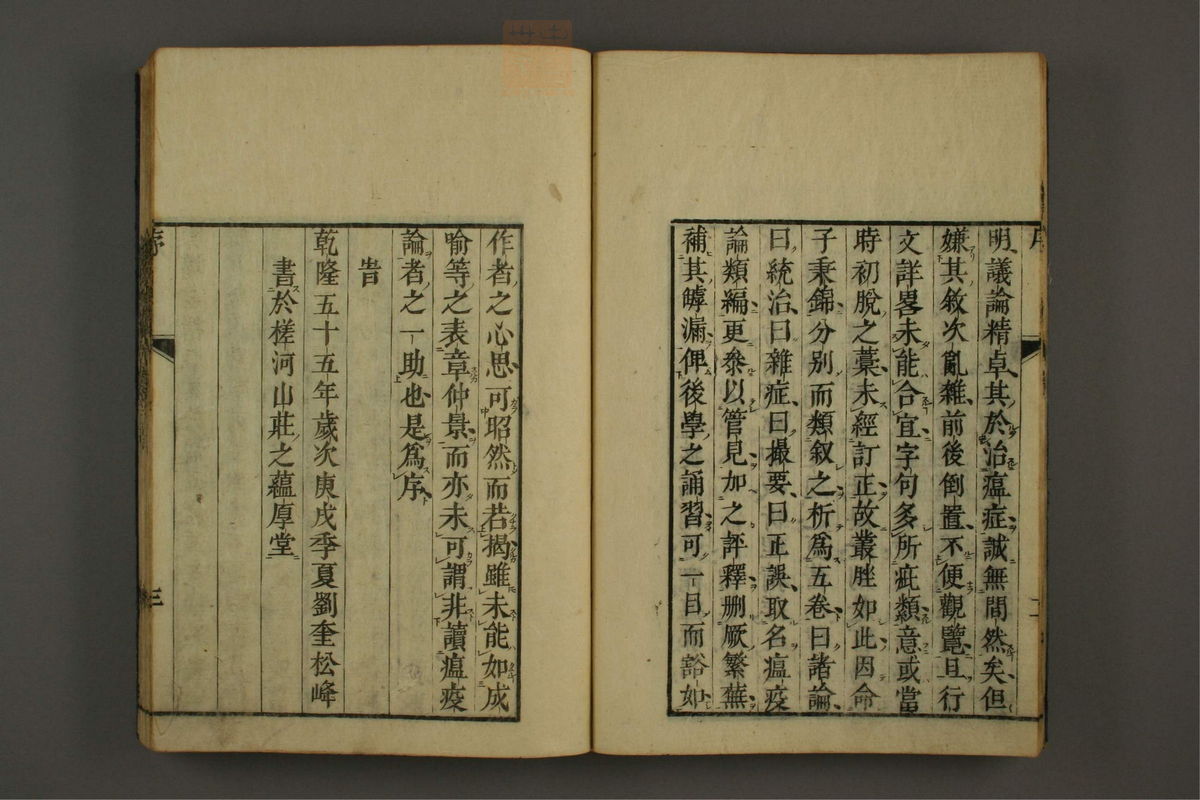 明議論精卓其於治瘟症誠無間然矣但
嫌其敘次亂雜前後倒置不便觀覽且行
文詳畧未能合宜字句多所疵纇意或當
時初脫之藁未經訂正故叢脞如此因命
子秉錦分別而類叙之析爲五卷曰諸論
曰統治曰雜症曰撮要曰正誤取名瘟疫
論類編更叅以管見加之評釋删厥繁蕪
補其罅漏俾後學之誦習可一目而豁如
作者之心思可昭然而若揭雖未能如成
喻等之表章仲景而亦未可謂非讀瘟疫
論者之一助也是爲序
旹
乾隆五十五年歲次庚戌季夏劉奎松峰
書於槎河山莊之蘊厚堂
序
三